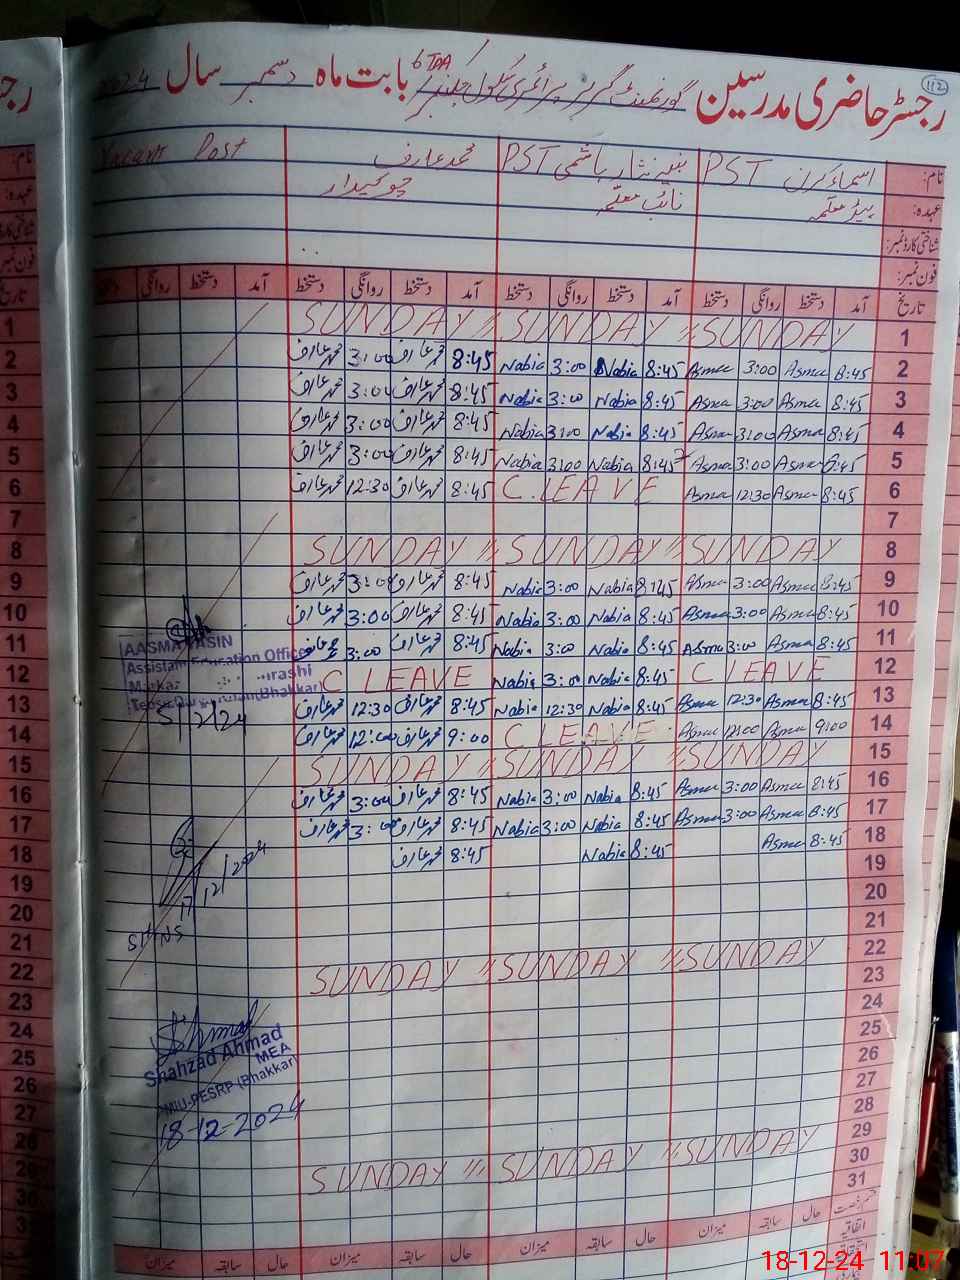 112
رجسٹر حاضری مدرسین گورنمنٹ گرلز پرائمری سکول 6 TDA بابت ماہ دسمبر سال 2024
نام: اسماء کرن PST نثار ہاشمی PST محمد عارف Vacant Post
عہدہ: ہیڈ معلمہ نائب معلمہ چوکیدار
شناختی کارڈ نمبر:
فون نمبر:
تاریخ آمد دستخط روانگی دستخط آمد دستخط روانگی دستخط آمد دستخط روانگی دستخط آمد دستخط روانگی
1 SUNDAY " SUNDAY " SUNDAY 1
2 محمد عارف 3:00 محمد عارف 8:45 Nabia 3:00 Nabia 8:45 Asma 3:00 Asma 8:45 2
3 محمد عارف 3:00 محمد عارف 8:45 Nabia 3:00 Nabia 8:45 Asma 3:00 Asma 8:45 3
4 محمد عارف 3:00 محمد عارف 8:45 Nabia 3:00 Nabia 8:45 Asma 3:00 Asma 8:45 4
5 محمد عارف 3:00 محمد عارف 8:45 Nabia 3:00 Nabia 8:45 Asma 3:00 Asma 8:45 5
6 محمد عارف 12:30 محمد عارف 8:45 C. LEAVE Asma 12:30 Asma 8:45 6
7 7
8 SUNDAY " SUNDAY " SUNDAY 8
9 محمد عارف 3:00 محمد عارف 8:45 Nabia 3:00 Nabia 8:45 Asma 3:00 Asma 8:45 9
10 محمد عارف 3:00 محمد عارف 8:45 Nabia 3:00 Nabia 8:45 Asma 3:00 Asma 8:45 10
11 محمد عارف 3:00 محمد عارف 8:45 Nabia 3:00 Nabia 8:45 Asma 3:00 Asma 8:45 11
12 C LEAVE Nabia 3:00 Nabia 8:45 C LEAVE 12
13 محمد عارف 12:30 محمد عارف 8:45 Nabia 12:30 Nabia 8:45 Asma 12:30 Asma 8:45 13
14 محمد عارف 12:00 محمد عارف 9:00 C LEAVE Asma 12:00 Asma 9:00 14
15 SUNDAY " SUNDAY " SUNDAY 15
16 محمد عارف 3:00 محمد عارف 8:45 Nabia 3:00 Nabia 8:45 Asma 3:00 Asma 8:45 16
17 محمد عارف 3:00 محمد عارف 8:45 Nabia 3:00 Nabia 8:45 Asma 3:00 Asma 8:45 17
18 محمد عارف 8:45 Nabia 8:45 Asma 8:45 18
19 19
20 20
21 21
22 SUNDAY " SUNDAY " SUNDAY 22
23 23
24 24
25 25
26 26
27 27
28 28
29 SUNDAY " SUNDAY " SUNDAY 29
30 30
31
AASMA YASIN
Assistant Education Officer
5/12/24
17/12/2024
Shahzad Ahmad
MEA
PMIU-PESRP (Bhakkar)
18-12-2024
اتفاقیہ
حال سابقہ میزان حال سابقہ میزان حال سابقہ میزان حال سابقہ میزان
18-12-24 11:07